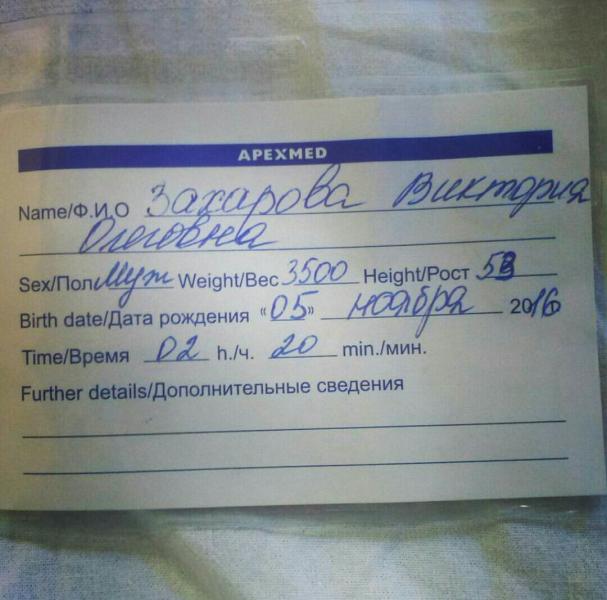 APEXMED
Name/Ф.И.О Захарова Виктория
Олеговна
Sex/Пол Муж Weight/Вес 3500 Height/Рост 53
Birth date/Дата рождения «05» ноября 2016
Time/Время 02 h./ч. 20 min./мин.
Further details/Дополнительные сведения